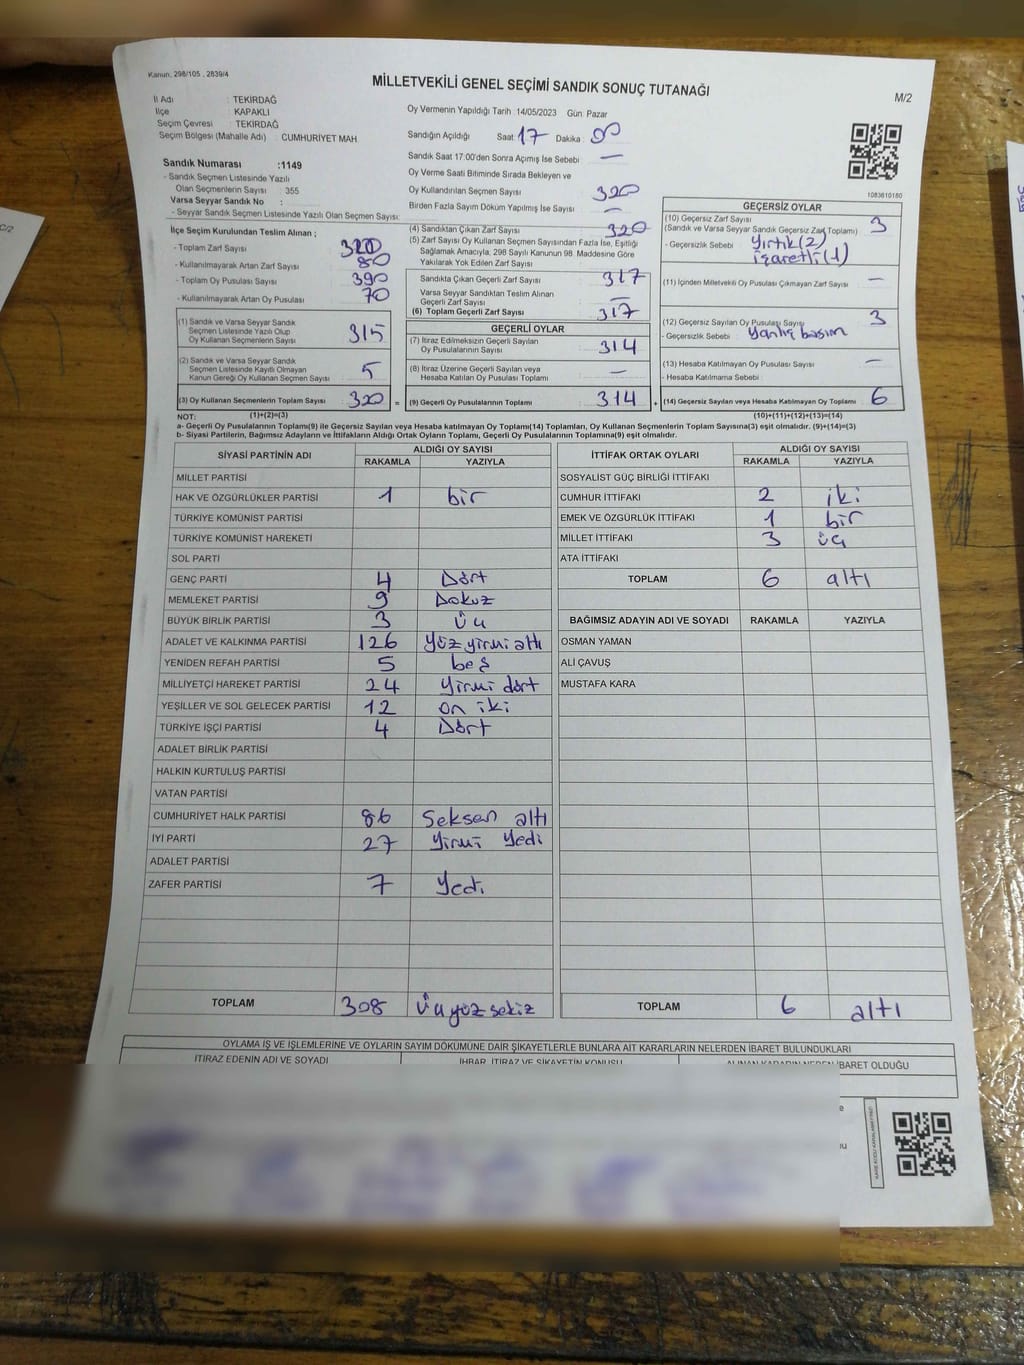 Kanun: 298/105 , 2839/4
MİLLETVEKİLİ GENEL SEÇİMİ SANDIK SONUÇ TUTANAĞI
M/2
İl Adı : TEKİRDAĞ
İlçe : KAPAKLI
Seçim Çevresi : TEKİRDAĞ
Seçim Bölgesi (Mahalle Adı) : CUMHURİYET MAH.
Sandık Numarası :1149
- Sandık Seçmen Listesinde Yazılı
Olan Seçmenlerin Sayısı : 355
Varsa Seyyar Sandık No :
- Seyyar Sandık Seçmen Listesinde Yazılı Olan Seçmen Sayısı:
Oy Vermenin Yapıldığı Tarih :14/05/2023 Gün: Pazar
Sandığın Açıldığı Saat: 17 Dakika :
Sandık Saat 17:00'den Sonra Açımış İse Sebebi : —
Oy Verme Saati Bitiminde Sırada Bekleyen ve
Oy Kullandırılan Seçmen Sayısı 320
Birden Fazla Sayım Döküm Yapılmış İse Sayısı : —
1083610180
İlçe Seçim Kurulundan Teslim Alınan ;
- Toplam Zarf Sayısı
- Kullanılmayarak Artan Zarf Sayısı 80
- Toplam Oy Pusulası Sayısı 390
- Kullanılmayarak Artan Oy Pusulası 70
(1) Sandık ve Varsa Seyyar Sandık
Seçmen Listesinde Yazılı Olup
Oy Kullanan Seçmenlerin Sayısı 315
(2) Sandık ve Varsa Seyyar Sandık
Seçmen Listesinde Kayıtlı Olmayan
Kanun Gereği Oy Kullanan Seçmen Sayısı 5
(3) Oy Kullanan Seçmenlerin Toplam Sayısı 320 =
(4) Sandıktan Çıkan Zarf Sayısı : 320
(5) Zarf Sayısı Oy Kullanan Seçmen Sayısından Fazla İse, Eşitliği
Sağlamak Amacıyla, 298 Sayılı Kanunun 98. Maddesine Göre
Yakılarak Yok Edilen Zarf Sayısı :
Sandıkta Çıkan Geçerli Zarf Sayısı : 317
Varsa Seyyar Sandıktan Teslim Alınan
Geçerli Zarf Sayısı —
(6) Toplam Geçerli Zarf Sayısı : 317
GEÇERLİ OYLAR
(7) İtiraz Edilmeksizin Geçerli Sayılan
Oy Pusulalarının Sayısı : 314
(8) İtiraz Üzerine Geçerli Sayılan veya
Hesaba Katılan Oy Pusulası Toplamı —
(9) Geçerli Oy Pusulalarının Toplamı 314 +
GEÇERSİZ OYLAR
(10) Geçersiz Zarf Sayısı 3
(Sandık ve Varsa Seyyar Sandık Geçersiz Zarf Toplamı)
- Geçersizlik Sebebi : Yırtık(2)
işaretli(1)
(11) İçinden Milletvekili Oy Pusulası Çıkmayan Zarf Sayısı : —
(12) Geçersiz Sayılan Oy Pusulası Sayısı 3
- Geçersizlik Sebebi : Yanlış basım
(13) Hesaba Katılmayan Oy Pusulası Sayısı : —
- Hesaba Katılmama Sebebi :
(14) Geçersiz Sayılan veya Hesaba Katılmayan Oy Toplamı 6
NOT: (1)+(2)=(3) (10)+(11)+(12)+(13)=(14)
a- Geçerli Oy Pusulalarının Toplamı(9) ile Geçersiz Sayılan veya Hesaba katılmayan Oy Toplamı(14) Toplamları, Oy Kullanan Seçmenlerin Toplam Sayısına(3) eşit olmalıdır. (9)+(14)=(3)
b- Siyasi Partilerin, Bağımsız Adayların ve İttifakların Aldığı Ortak Oyların Toplamı, Geçerli Oy Pusulalarının Toplamına(9) eşit olmalıdır.
SİYASİ PARTİNİN ADI ALDIĞI OY SAYISI
RAKAMLA YAZIYLA
MİLLET PARTİSİ
HAK VE ÖZGÜRLÜKLER PARTİSİ 1 bir
TÜRKİYE KOMÜNİST PARTİSİ
TÜRKİYE KOMÜNİST HAREKETİ
SOL PARTİ
GENÇ PARTİ 4 Dört
MEMLEKET PARTİSİ 9 Dokuz
BÜYÜK BİRLİK PARTİSİ 3 üç
ADALET VE KALKINMA PARTİSİ 126 Yüz yirmi altı
YENİDEN REFAH PARTİSİ 5 beş
MİLLİYETÇİ HAREKET PARTİSİ 24 Yirmi dört
YEŞİLLER VE SOL GELECEK PARTİSİ 12 on iki
TÜRKİYE İŞÇİ PARTİSİ 4 Dört
ADALET BİRLİK PARTİSİ
HALKIN KURTULUŞ PARTİSİ
VATAN PARTİSİ
CUMHURİYET HALK PARTİSİ 86 Seksen altı
İYİ PARTİ 27 Yirmi Yedi
ADALET PARTİSİ
ZAFER PARTİSİ 7 Yedi
TOPLAM 308 üç yüz sekiz
İTTİFAK ORTAK OYLARI ALDIĞI OY SAYISI
RAKAMLA YAZIYLA
SOSYALİST GÜÇ BİRLİĞİ İTTİFAKI
CUMHUR İTTİFAKI 2 iki
EMEK VE ÖZGÜRLÜK İTTİFAKI 1 bir
MİLLET İTTİFAKI 3 üç
ATA İTTİFAKI
TOPLAM 6 altı
BAĞIMSIZ ADAYIN ADI VE SOYADI RAKAMLA YAZIYLA
OSMAN YAMAN
ALİ ÇAVUŞ
MUSTAFA KARA
TOPLAM 6 altı
OYLAMA İŞ VE İŞLEMLERİNE VE OYLARIN SAYIM DÖKÜMÜNE DAİR ŞİKAYETLERLE BUNLARA AİT KARARLARIN NELERDEN İBARET BULUNDUKLARI
İTİRAZ EDENİN ADI VE SOYADI İHBAR, İTİRAZ VE ŞİKAYETİN KONUSU ALINAN KARARIN NEDEN İBARET OLDUĞU